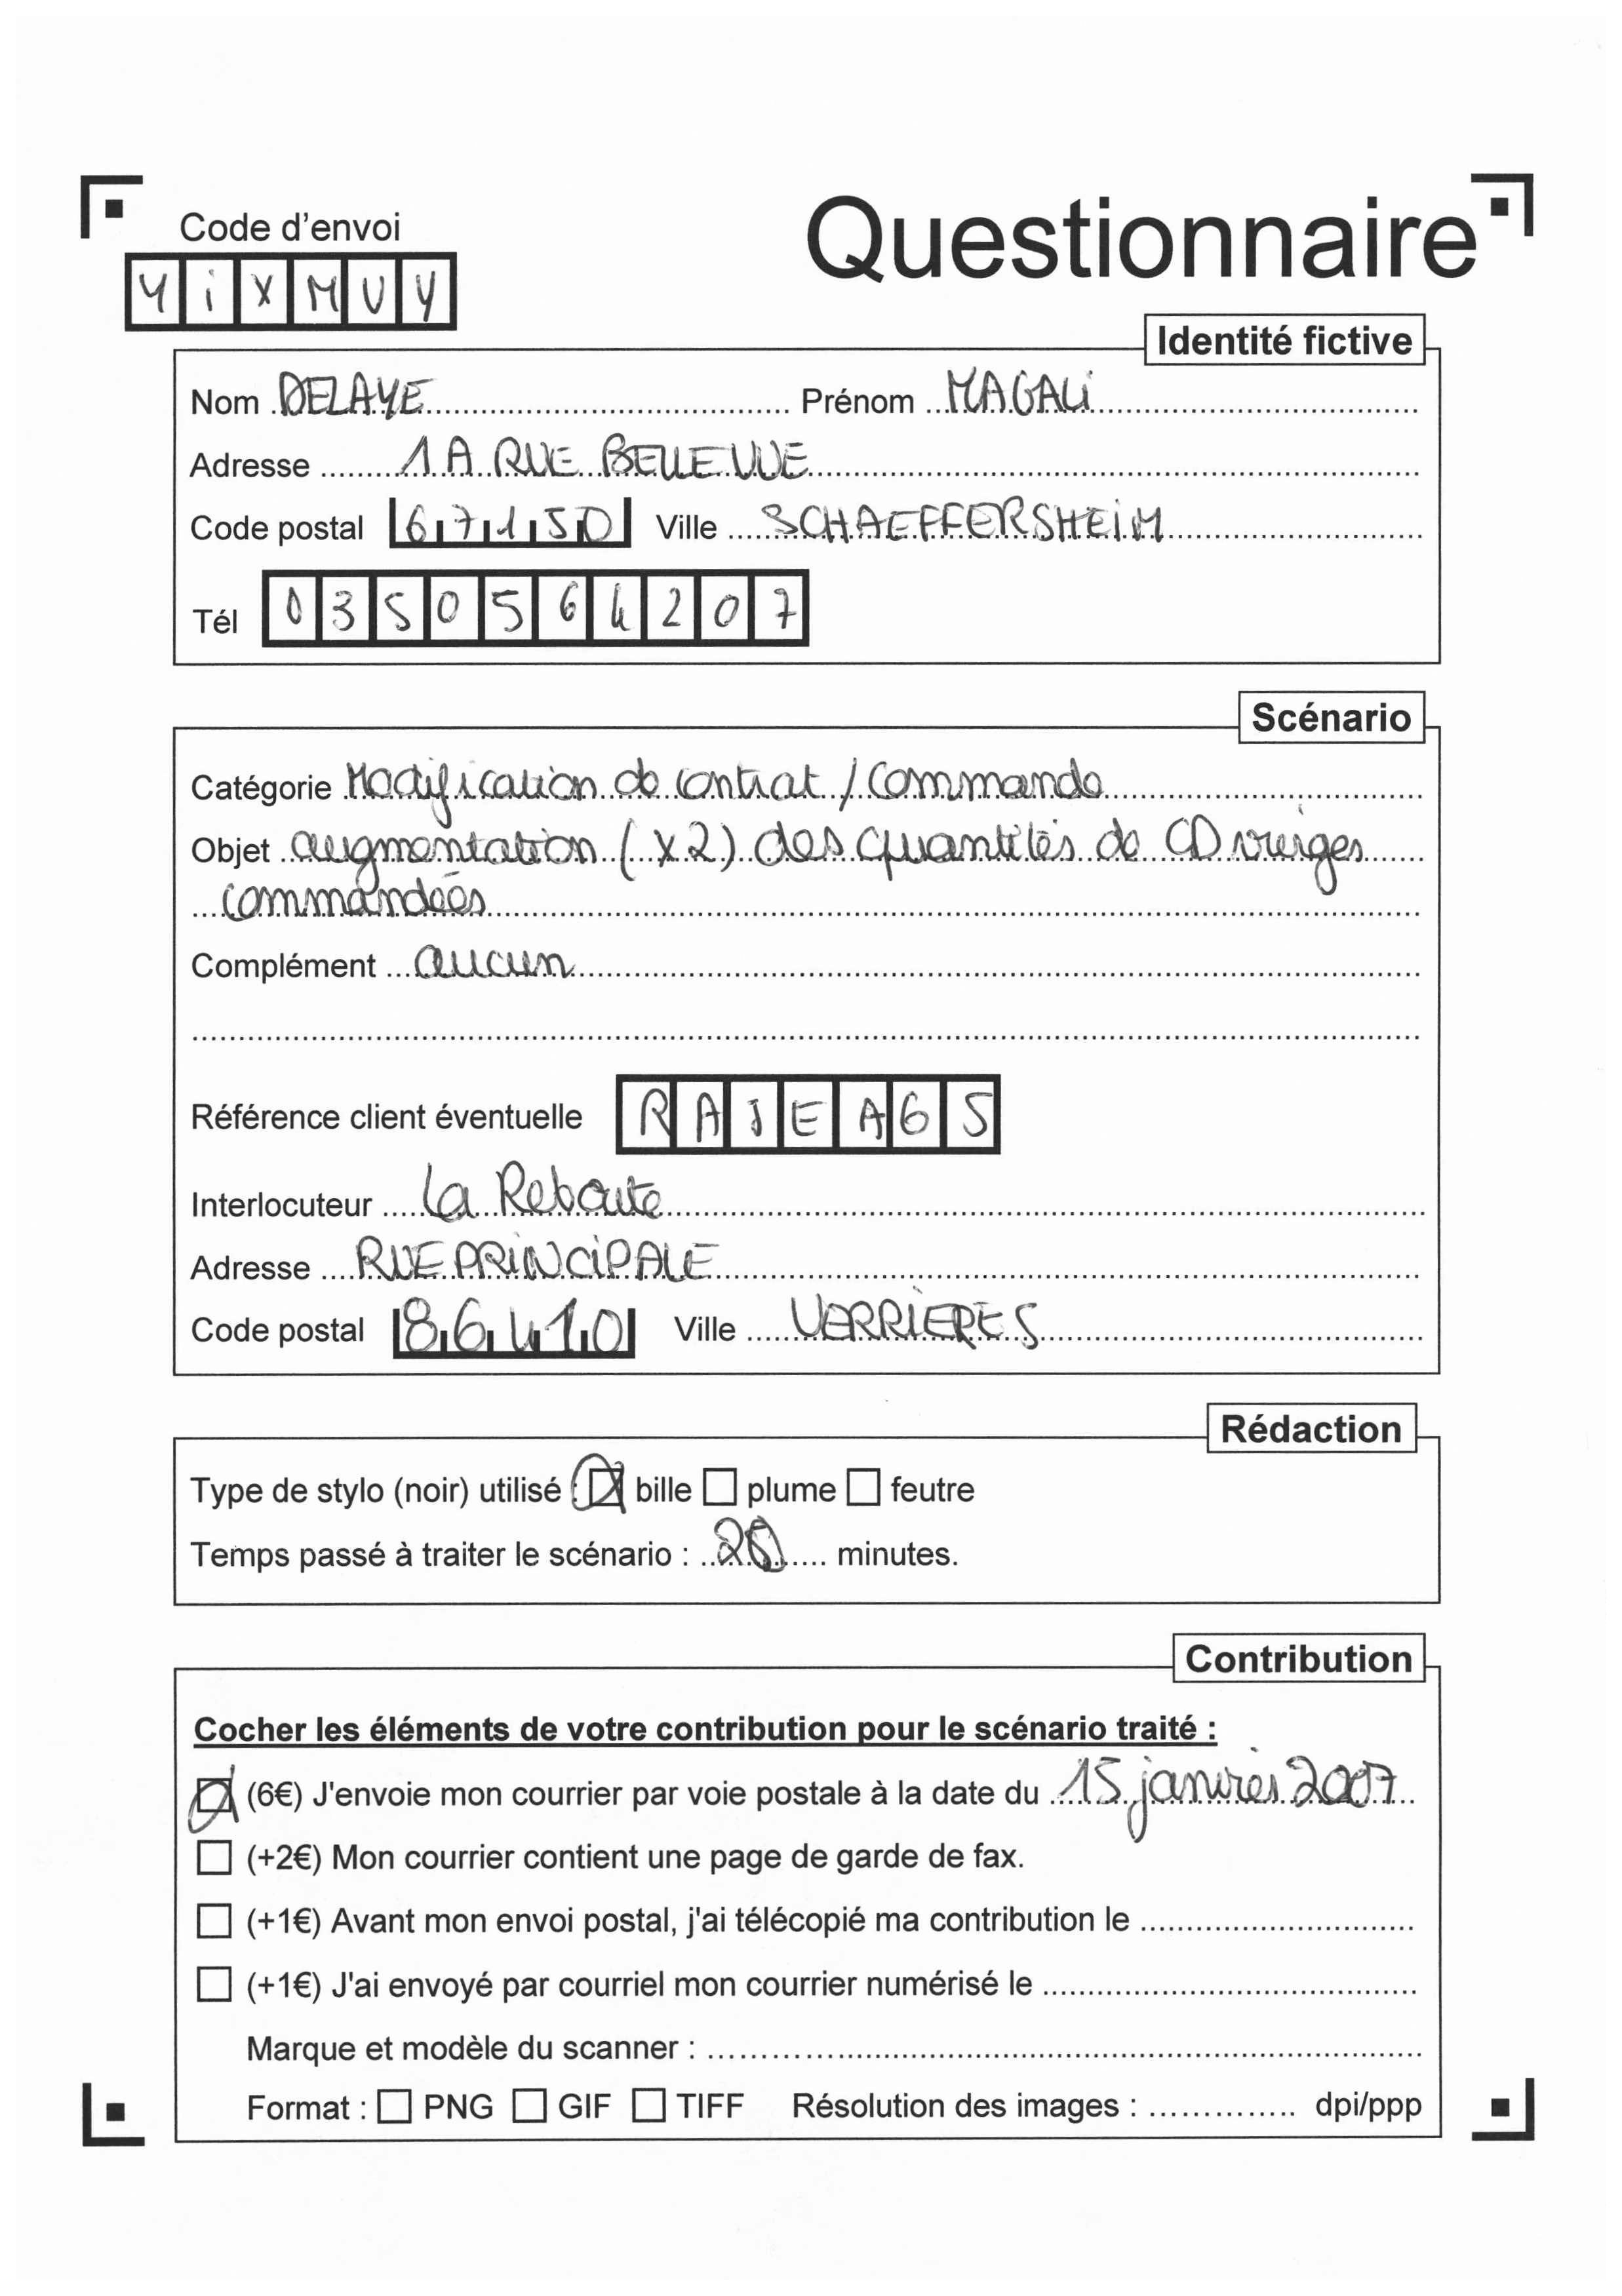 Code d'envoi
Questionnaire
Y i X M U Y
Identité fictive
Nom DELAYE Prénom MAGALi
Adresse 1A RUE BELLEVUE
Code postal 67150 Ville SCHAEFFERSHEiM
Tél 0350564207
Scénario
Catégorie Modification de contrat / Commande
Objet augmentation (x2) des quantités de CD vierges
commandées
Complément aucun
Référence client éventuelle RAJEAG5
Interlocuteur La Reboute
Adresse RUE PRiNCiPALE
Code postal 86410 Ville VERRIERES
Rédaction
Type de stylo (noir) utilisé : bille plume feutre
Temps passé à traiter le scénario : 20 minutes.
Contribution
Cocher les éléments de votre contribution pour le scénario traité :
(6€) J'envoie mon courrier par voie postale à la date du 15 janvier 2007
(+2€) Mon courrier contient une page de garde de fax.
(+1€) Avant mon envoi postal, j'ai télécopié ma contribution le
(+1€) J'ai envoyé par courriel mon courrier numérisé le
Marque et modèle du scanner :
Format : PNG GIF TIFF Résolution des images : dpi/ppp